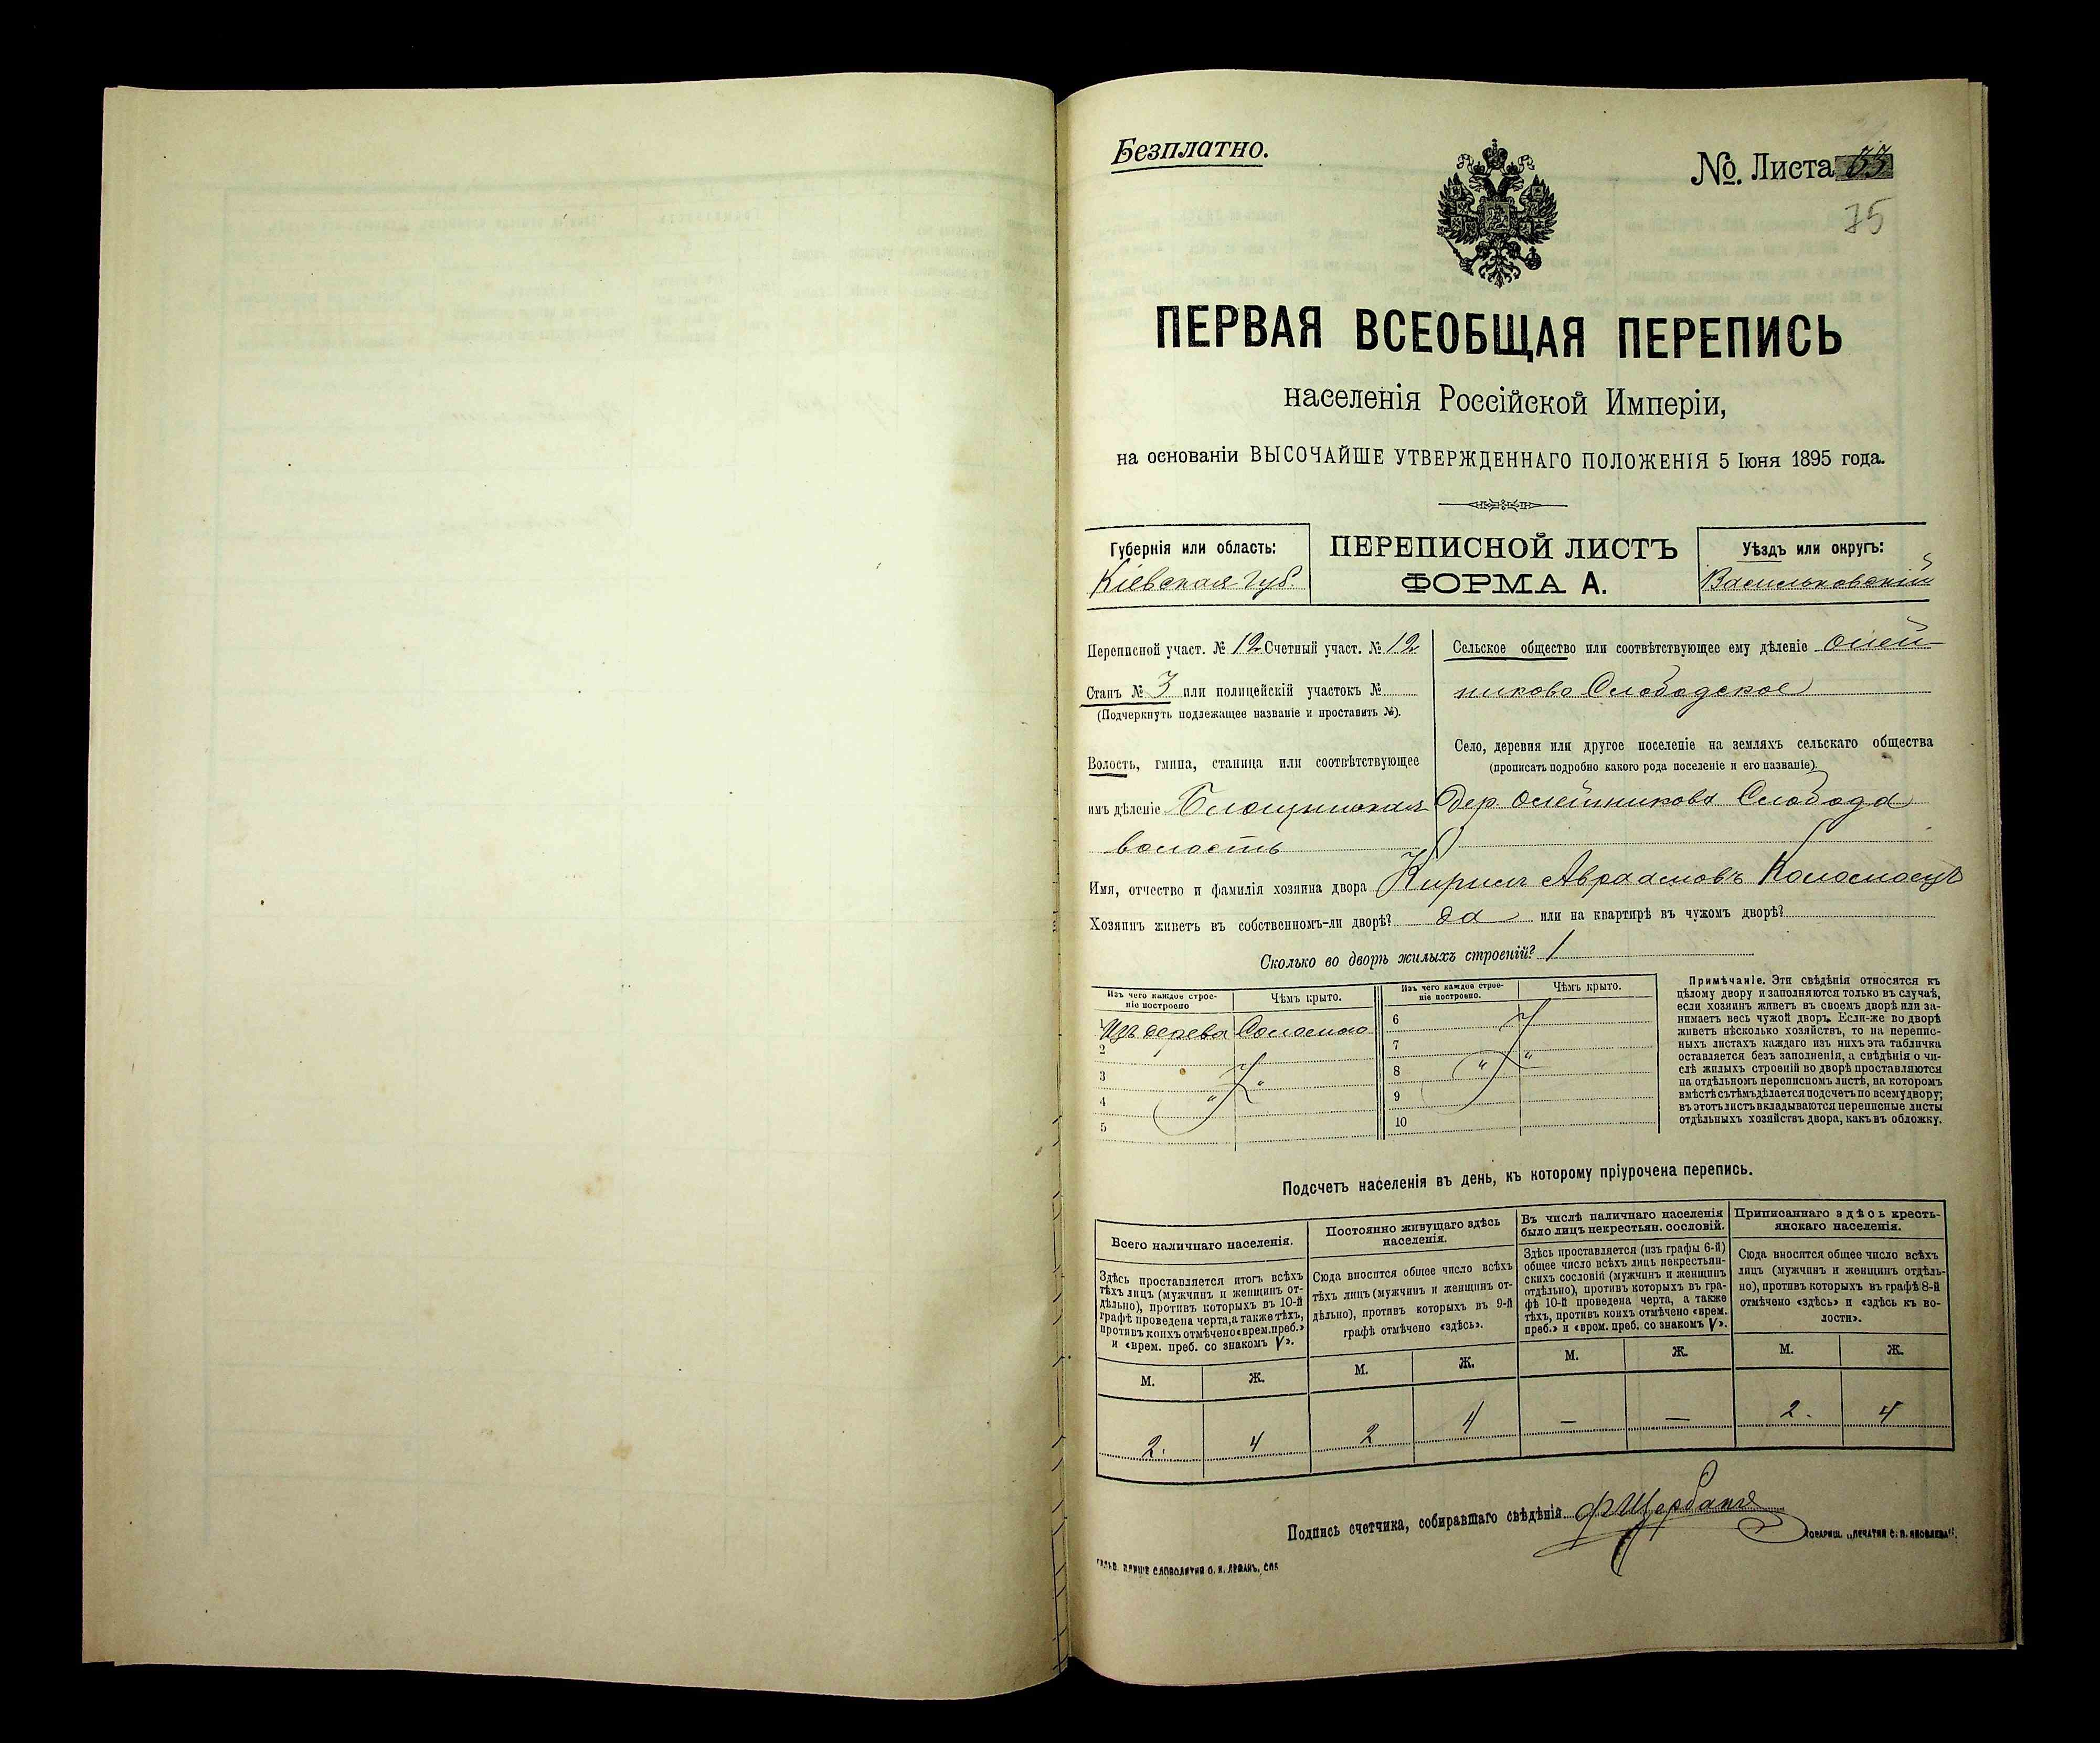 Безплатно.
№ Листа 33
75
ПЕРВАЯ ВСЕОБЩАЯ ПЕРЕПИСЬ
населенія Россійской Имперіи,
на основаніи ВЫСОЧАЙШЕ УТВЕРЖДЕННАГО ПОЛОЖЕНІЯ 5 Іюня 1895 года.
Губернія или область:
Кіевская губ.
ПЕРЕПИСНОЙ ЛИСТЪ
ФОРМА А.
Уѣздъ или округъ:
Васильковскій
Переписной участ. № 12 Счетный участ. № 12
Станъ № 3 или полицейскій участокъ №
(Подчеркнуть подлежащее названіе и проставить №).
Волость, гмина, станица или соотвѣтствующее
имъ дѣленіе Блощинская
волость
Сельское общество или соотвѣтствующее ему дѣленіе Олей-
никово Слободское
Село, деревня или другое поселеніе на земляхъ сельскаго общества
(прописать подробно какого рода поселеніе и его названіе).
Дер. Олейникова Слобода
Имя, отчество и фамилія хозяина двора Кирилъ Авраамовъ Коломоецъ
Хозяинъ живетъ въ собственномъ-ли дворѣ? да или на квартирѣ въ чужомъ дворѣ?
Сколько во дворѣ жилыхъ строеній? 1
Изъ чего каждое строе-
ніе построено
Чѣмъ крыто.
1 Изъ дерева Соломою
2
3
4 " "
5
Изъ чего каждое строе-
ніе построено.
Чѣмъ крыто.
6
7
8 " "
9
10
Примѣчаніе. Эти свѣдѣнія относятся къ
цѣлому двору и заполняются только въ случаѣ,
если хозяинъ живетъ въ своемъ дворѣ или за-
нимаетъ весь чужой дворъ. Если-же во дворѣ
живетъ нѣсколько хозяйствъ, то на перепис-
ныхъ листахъ каждаго изъ нихъ эта табличка
оставляется безъ заполненія, а свѣдѣнія о чи-
слѣ жилыхъ строеній во дворѣ проставляются
на отдѣльномъ переписномъ листѣ, на которомъ
вмѣстѣ съ тѣмъ дѣлается подсчетъ по всему двору;
въ этотъ листъ вкладываются переписные листы
отдѣльныхъ хозяйствъ двора, какъ въ обложку.
Подсчетъ населенія въ день, къ которому пріурочена перепись.
Всего наличнаго населенія.
Здѣсь проставляется итогъ всѣхъ
тѣхъ лицъ (мужчинъ и женщинъ от-
дѣльно), противъ которыхъ въ 10-й
графѣ проведена черта, а также тѣхъ,
противъ коихъ отмѣчено «врем. преб.»
и «врем. преб. со знакомъ V».
М. Ж.
2. 4
Постоянно живущаго здѣсь
населенія.
Сюда вносится общее число всѣхъ
тѣхъ лицъ (мужчинъ и женщинъ от-
дѣльно), противъ которыхъ въ 9-й
графѣ отмѣчено «здѣсь».
М. Ж.
2 4
Въ числѣ наличнаго населенія
было лицъ некрестьян. сословій.
Здѣсь проставляется (изъ графы 6-й)
общее число всѣхъ лицъ некрестьян-
скихъ сословій (мужчинъ и женщинъ
отдѣльно), противъ которыхъ въ гра-
фѣ 10-й проведена черта, а также
тѣхъ, противъ коихъ отмѣчено «врем.
преб.» и «врем. преб. со знакомъ V».
М. Ж.
— —
Приписаннаго здѣсь кресть-
янскаго населенія.
Сюда вносится общее число всѣхъ
лицъ (мужчинъ и женщинъ отдѣль-
но), противъ которыхъ въ графѣ 8-й
отмѣчено «здѣсь» и «здѣсь къ во-
лости».
М. Ж.
2. 4
Подпись счетчика, собиравшаго свѣдѣнія Ф Щербаня
Товарищ. „Печатня С. П. Яковлева“.
клише словолитни О. И. Леманъ, СПб